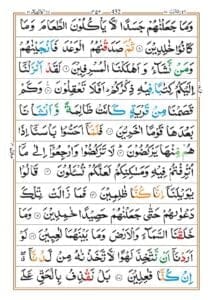 وَمَا جَعَلْنٰهُمْ جَسَدًا لَّا يَاْكُلُوْنَ الطَّعَامَ وَمَا
كَانُوْا خٰلِدِيْنَ ۝ ثُمَّ صَدَقْنٰهُمُ الْوَعْدَ فَاَنْجَيْنٰهُمْ
وَمَنْ نَّشَآءُ وَ اَهْلَكْنَا الْمُسْرِفِيْنَ ۝ لَقَدْ اَنْزَلْنَآ
اِلَيْكُمْ كِتٰبًا فِيْهِ ذِكْرُكُمْ ؕ اَفَلَا تَعْقِلُوْنَ ۝ وَكَمْ
قَصَمْنَا مِنْ قَرْيَةٍ كَانَتْ ظَالِمَةً وَّ اَنْشَاْنَا
بَعْدَهَا قَوْمًا اٰخَرِيْنَ ۝ فَلَمَّآ اَحَسُّوْا بَاْسَنَآ اِذَا
هُمْ مِّنْهَا يَرْكُضُوْنَ ۝ لَا تَرْكُضُوْا وَارْجِعُوْٓا اِلٰى مَآ
اُتْرِفْتُمْ فِيْهِ وَمَسٰكِنِكُمْ لَعَلَّكُمْ تُسْـَٔلُوْنَ ۝ قَالُوْا
يٰوَيْلَنَآ اِنَّا كُنَّا ظٰلِمِيْنَ ۝ فَمَا زَالَتْ تِّلْكَ
دَعْوٰىهُمْ حَتّٰى جَعَلْنٰهُمْ حَصِيْدًا خٰمِدِيْنَ ۝ وَمَا
خَلَقْنَا السَّمَآءَ وَالْاَرْضَ وَمَا بَيْنَهُمَا لٰعِبِيْنَ ۝ لَوْ
اَرَدْنَآ اَنْ نَّتَّخِذَ لَهْوًا لَّاتَّخَذْنٰهُ مِنْ لَّدُنَّآ
اِنْ كُنَّا فٰعِلِيْنَ ۝ بَلْ نَقْذِفُ بِالْحَقِّ عَلَى